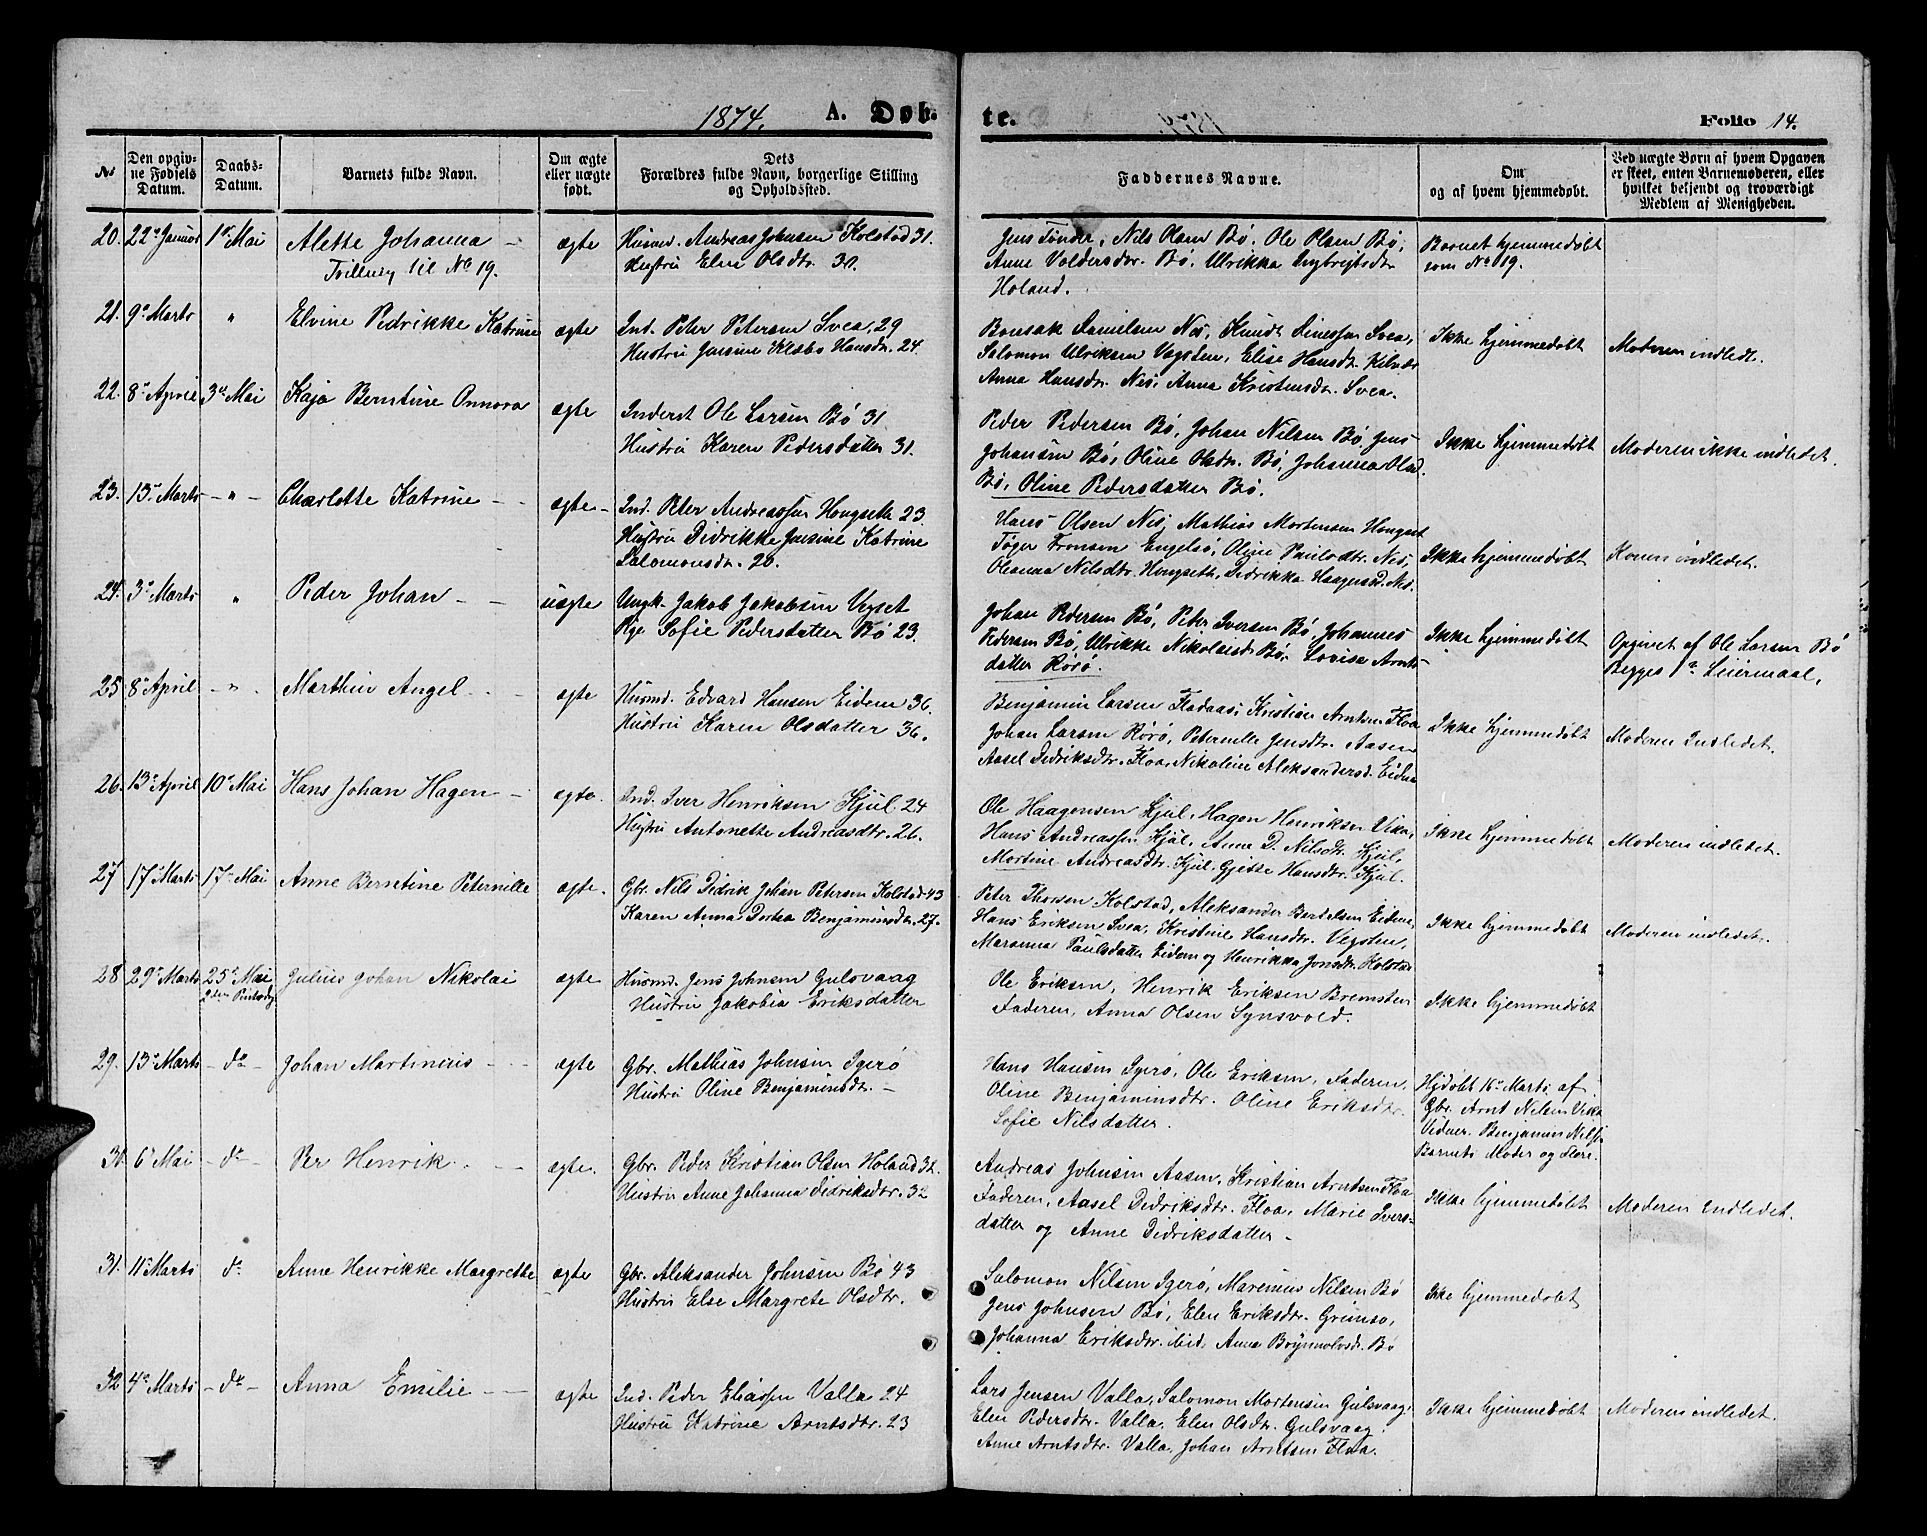 1874. A. Døb- te. Folio 14.
No
Den opgivne Fødsels Datum.
Daabs-Datum.
Barnets fulde Navn.
Om ægte eller uægte født.
Dets Forældres fulde Navn, borgerlige Stilling og Opholdssted.
Faddernes Navne.
Om og af hvem hjemmedøbt.
Ved uægte Børn af hvem Opgaven er skeet, enten Barnemoderen, eller hvilket bekjendt og troværdigt Medlem af Menigheden.
20. 22de Januar 1ste Mai Alette Johanna – ægte Husmd. Andreas Johnsen Kolstad 31. Jens Tønder, Nils Olsen Bø, Ole Olsen Bø, Barnet hjemmedøbt
Tvilling til No 19. Hustru Elen Olsdtr. 30. Anne Voldersdtr. Bø, Ulrikka Ingbrigtsdtr som No 19.
Holand.
21. 9de Marts " Elvine Pedrikke Katrine ægte Ind. Peter Petersen Svea, 29 Bonsak Danielsen Nes, Knudt Svea, Ikke hjemmedøbt Moderen indledt.
Hustru Jensine Klebo Hansdtr. 24. Salomon Ulriksen Vegsten, Elise Hansdtr.
Anna Hansdtr. Nes, Anna Kristensdtr. Svea.
22. 8de April 3die Mai Kaja Berntine Onnora ægte Inderst Ole Larsen Bø 31 Peder Pedersen Bø, Johan Nilsen Bø, Jens Ikke hjemmedøbt Moderen ikke indledet.
Hustru Karen Pedersdatter 31. Johansen Bø, Oline Olsdtr. Bø, Johanna Olsd.
Bø, Oline Pedersdatter Bø.
23. 13de Marts – " – Charlotte Katrine – – ægte – Ind. Peter Andreassen Hongseth 23 Hans Olsen Nes, Mathias Mortensen Hongset Ikke hjemmedøbt Konen indledet.
Hustru Didrikke Jensine Katrine Tøger Fronsen Engelsø, Oline Paulsdtr. Nes,
Salomonsdr. 20. Oleanna Nilsdtr. Hongseth, Didrikka Haagensd. Nes.
24. 3de Marts " Peder Johan – – uægte Ungk. Jakob Jakobsen Vegset Johan Pedersen Bø, Peter Iversen Bø, Johannes Ikke hjemmedøbt Opgivet af Ole Larsen Bø
Pige Sofie Pedersdatter Bø 23. Pedersen Bø, Ulrikke Nikolaisd. Bø, Lovise Arnts- Begges 1ste Leiermaal.
datter Rørø.
25. 8de April – " – Marthin Angel – – ægte Husmd. Edvard Hansen Eidem 36. Benjamin Larsen Fladaas, Kristian Arntsen Floa Ikke hjemmedøbt Moderen Indledet.
Hustru Karen Olsdatter 36. Johan Larsen Rørø, Peternille Jensdtr. Aasen
Aasel Didriksdtr. Floa, Nikoline Aleksandersd. Eidem
26. 13de April 10de Mai Hans Johan Hagen – ægte. Ind. Iver Henriksen Kjul 24 Ole Haagensen Kjul, Hagen Henriksen Vika, Ikke hjemmedøbt Moderen indledet.
Hustru Antonette Andreasdtr. 26. Hans Andreassen Kjul, Anne D. Nilsdtr. Kjul,
Martine Andreasdtr. Kjul, Gjette Hansdtr. Kjul.
27 17de Marts 17de Mai Anne Berntine Peternille ægte. Gbr. Nils Didrik Johan Petersen Kolstad 43 Peter Thorsen Kolstad, Aleksander Bertelsen Eidem, Ikke hjemmedøbt Moderen indledet.
Karen Anna Dortea Benjaminsdtr. 27. Hans Eriksen Svea, Kristine Hansdtr. Vegsten,
Maranna Paulsdatter Eidem og Henrikka Jonsdtr. Kolstad
28 29de Marts 25de Mai Julius Johan Nikolai ægte Husmd. Jens Johnsen Gulsvaag Ole Eriksen, Henrik Eriksen Bremsten Ikke hjemmedøbt
2den Hustru Jakobia Eriksdatter Faderen, Anna Olsen Synsvold.
29. 13de Marts – do – Johan Martinius – – – ægte Gbr. Mathias Johnsen Igerø Hans Hansen Igerø, Ole Eriksen, Faderen, Hjdøbt 16de Marts af
Hustru Oline Benjaminsdtr. – Oline Benjaminsdtr. Oline Eriksdtr. Gbr. Arnt Nilsen Vika
Sofie Nilsdatter. Vidner. Benjamin Nilsen
Barnets Moder og Flere.
30 6te Mai – do – Per Henrik – – ægte. Gbr. Peder Kristian Olsen Holand 32. Andreas Johnsen Aasen, Kristian Arntsen Floa Ikke hjemmedøbt Moderen indledet.
Hustru Anne Johanna Didriksdtr. 32 Faderen, Aasel Didriksdtr. Floa, Marie Ivers-
datter og Anne Didriksdatter –
31. 11te Marts do Anne Henrikke Margrethe ægte Gbr. Aleksander Johnsen Bø 43 Salomon Nilsen Igerø, Marenius Nilsen Bø Ikke hjemmedøbt
Hustru Else Margrete Olsdtr. Jens Johnsen Bø, Elen Eriksdtr. Grimsø,
Johanna Eriksdtr. ibid, Anna Brynnolvsd. Bø
32 4de Marts – do – Anna Emilie – – ægte Ind. Peder Eliassen Valla 24 Lars Jensen Valla, Salomon Mortensen Gulsvaag, Ikke hjemmedøbt Moderen indledet.
Hustru Katrine Arntsdtr. 23 Elen Pedersdtr. Valla, Elen Olsdtr. Gulsvaag.
Anne Arntsdtr. Valla, Johan Arntsen Floa.